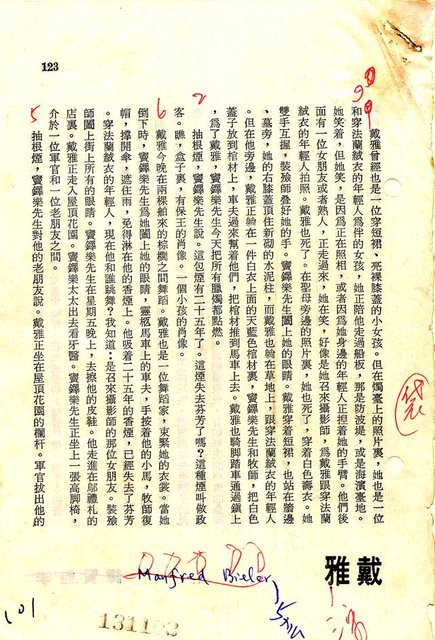 123
戴雅
戴雅曾經也是一位穿短裙、死裸膝蓋的小女孩。但在燭臺上的照片裏,她也是一位
和穿法蘭絨衣的年輕人爲伴的女孩,她正陪他走過船板,那是防波堤,或是海濱臺地。
她笑着,但她笑,是因爲正在照相,或者因爲她身邊的年輕人正揑着她的手臂。他們後
面有一位女朋友或者熟人,正走過來,她在笑,好像是她召來攝影師,爲戴雅跟穿法蘭
絨衣的年輕人拍照。戴雅也死了。在聖母旁邊的照片裏,她也死了,穿着白色壽衣。她
雙手互握,裝殮師疊好她的手。竇鐸樂先生闔上她的眼睛。戴雅穿着短裙,也站在牆邊
、墓旁,她的右膝蓋頂住新砌的水泥柱,而戴雅也躺在草地上,跟穿法蘭絨衣的年輕人
。但在他旁邊,戴雅正躺在一件白衣上面的天藍色棺材裏,竇鐸樂先生和牧師,把白色
蓋子放到棺材上,車夫過來幫着他們,把棺材推到馬車上去。戴雅也騎脚踏車通過鎭上
,爲了戴雅,竇鐸樂先生今天把所有臘燭都點燃。
抽根煙,竇鐸樂先生說。這包煙有二十五年了。這煙失去芬芳了嗎?這種煙叫做政
客。瞧,盒子裏,有保王的肖像。一個小孩的肖像。
戴雅今晚在兩棵舶來的棕櫚之間舞蹈。戴雅也是一位舞蹈家,束緊她的衣裳。當她
倒下時,竇鐸樂先生爲她闔上她的眼睛,靈柩馬車上的車夫,手按着他的小馬,牧師復
帽,撐開傘,遮住雨,免得淋在他的香煙上。他吸着二十五年的香煙,已經失去了芬芳
。穿法蘭絨衣的年輕人,現在他和誰跳舞?我知道:是召來攝影師的那位女朋友。裝殮
師闔上街上所有的眼睛。竇鐸樂先生在星期五晚上,去擦他的皮鞋。他走進在鄔禮札的
店裏。戴雅正走入屋頂花園。竇鐸樂太太出去看牙醫。竇鐸樂先生正坐上一張高脚椅,
介於一位軍官和一位老朋友之間。
抽根煙,竇鐸樂先生對他的老朋友說。戴雅正坐在屋頂花園的欄杆。軍官拔出他的
Manfred Bieler
131102